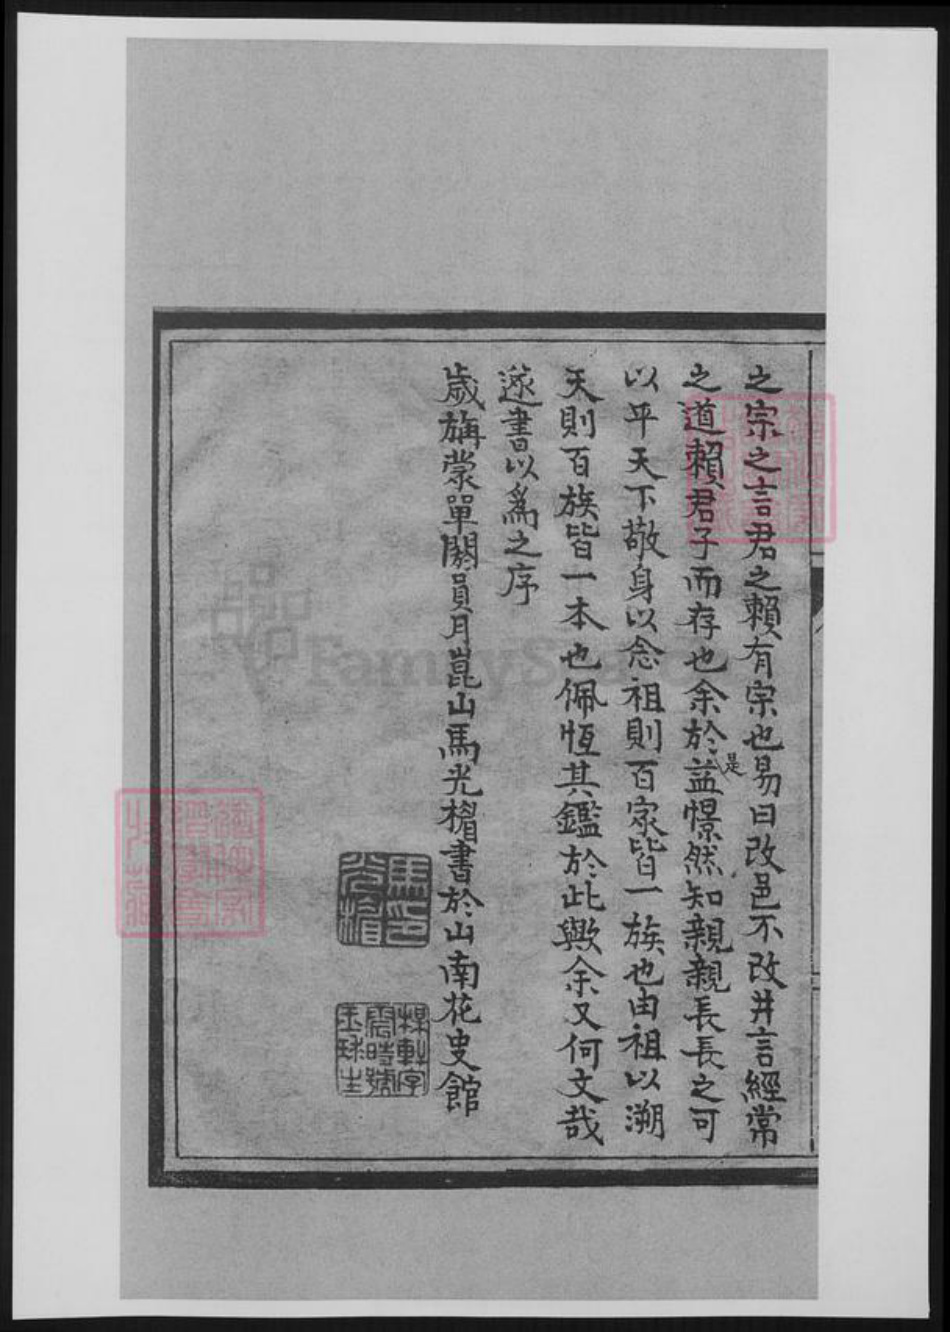 之宗之言君之賴有宗也易曰改邑不改井言經常
之道賴君子而存也余於是益憬然知親親長長之可
以平天下敬身以念祖則百家皆一族也由祖以溯
天則百族皆一本也佩恆其鑑於此歟余又何文哉
遂書以為之序
歲旃蒙單閼員月崑山馬光楣書於山南花史館
馬光楣印
FamilySearch